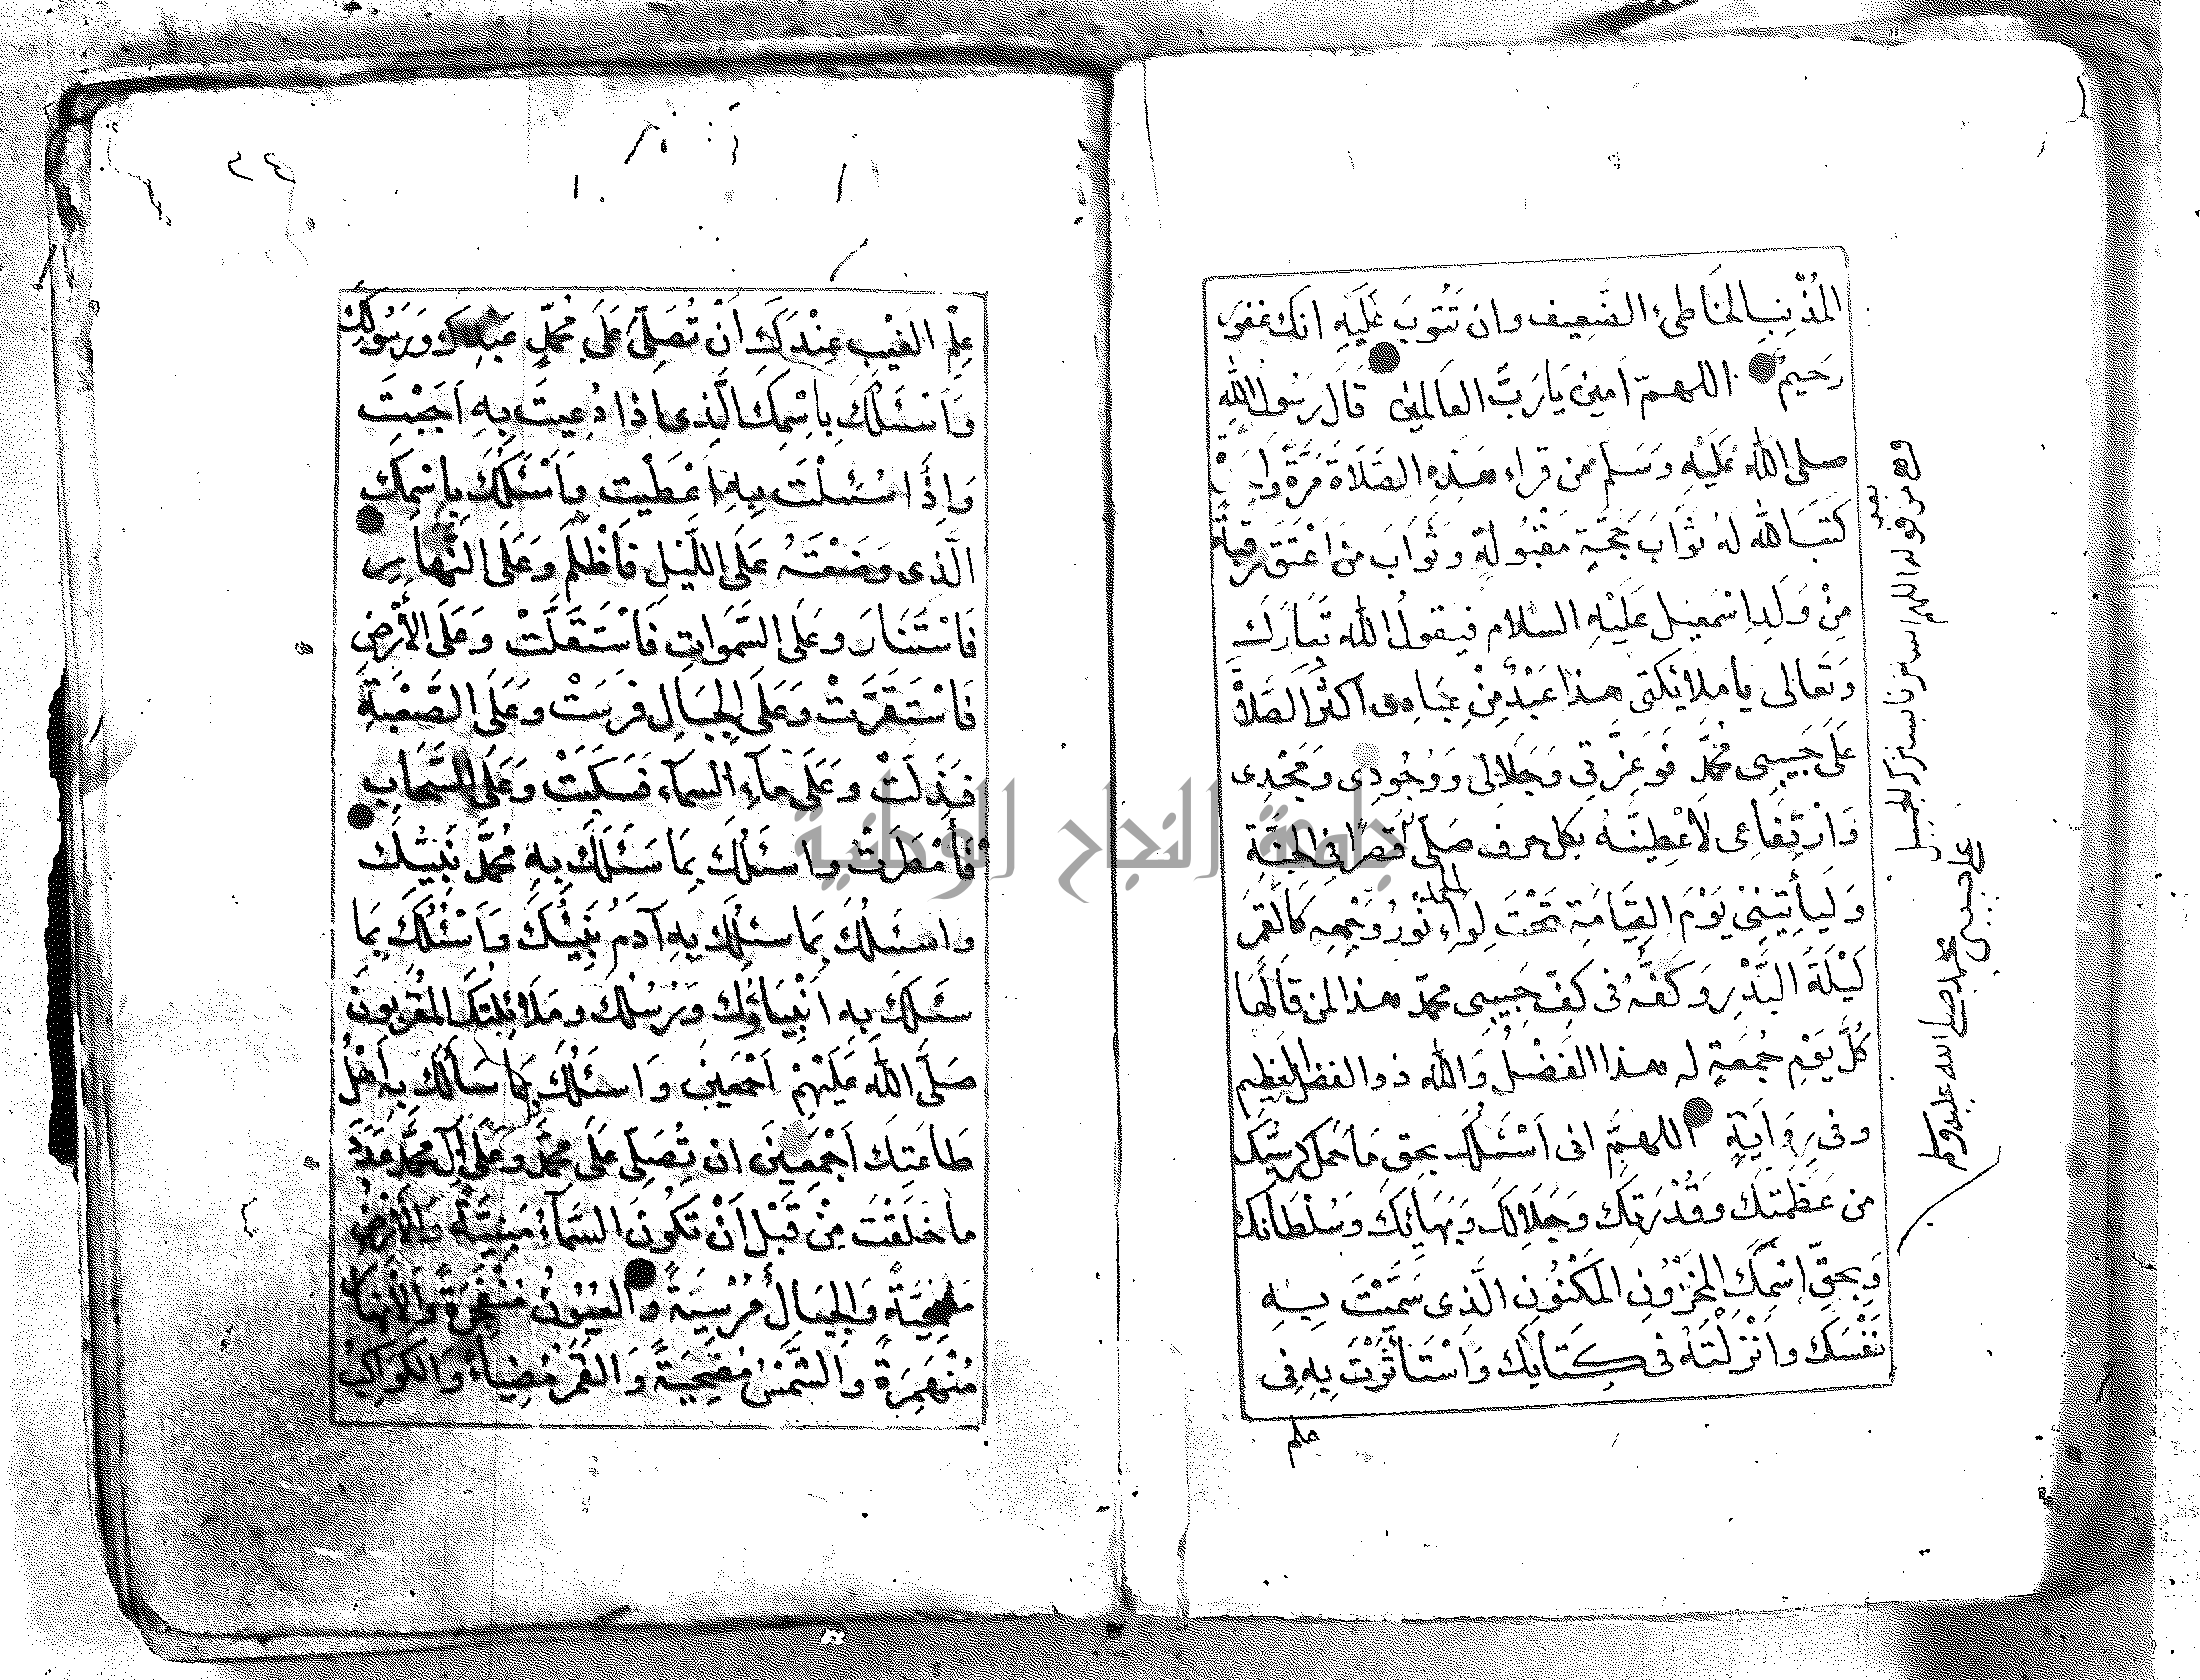 المُذْنِبِ الخَاطِئِ الضَّعِيفِ وان تَتُوبَ عَلَيْهِ انك غفور
رَحِيم اللهمّ آمين يَا رَبَّ العَالمين قَالَ رَسُول اللهِ
صلى الله عَلَيْهِ وَسَلم من قراء هذِهِ الصَّلَاةَ مَرَّةً وا
كَتَبَ الله لهُ ثَوَابَ حَجَّةٍ مَقْبُولَةٍ وثَوَابَ من اَعْتَقَ رقبةً
مِنْ وَلَدِ اِسْمَعِيل عَلَيْهِ السلام فيقول الله تَبَارَكَ
وَتَعَالى يا ملائكتى هذا عَبْدٌ مِنْ عِبَادِى اَكْثَرَ الصَّلاَةَ
عَلَى حَبِيبِى مُحَمَّدٍ فَوَ عِزَّتِى وَجَلَالِى وَوُجُودِى وَمَجْدِى
وَارْتِفَاعِى لَاُعْطِيَنَّهُ بكل حرف صَلَّى قَصْرًا فى الجَنَّةِ
وَلَيَأْتِيَنِى يَوْمَ القِيَامَةِ تَحْتَ لِوَاءِ الحمد نُورُ وَجْهِهِ كَالقَمَرِ
لَيْلَةَ البَدْرِ وَكَفُّهُ فى كَفِّ حَبِيبِى محمّد هذا لمن قَالَهَا
كُلَّ يَوْمِ جُمعَةٍ له هذا الفَضْلُ وَالله ذو الفضل العَظِيم
وفى رِوَايَةٍ اللهمَّ انى اَسْئَلُكَ بحق مَا حَمَلَ كُرْسِيُّكَ
من عَظَمَتِكَ وَقُدْرَتِكَ وَجَلَالِكَ وَبَهَائِكَ وَسُلْطَانِكَ
وَبِحَقِّ اِسْمِكَ المَخْزُونِ المَكْنُونِ الَّذِى سَمَّيْتَ بِهِ
نَفْسَكَ وَاَنْزَلْتَهُ فى كِتَابِكَ وَاسْتَأْثَرْتَ بِهِ فِى
علم
محمد صلى الله عليه وسلم
٢٤
عِلْمِ الغَيْبِ عِنْدَكَ اَنْ تُصَلِّىَ عَلَى مُحَمَّدٍ عَبْدِكَ وَرَسُولِكَ
وَاَسْئَلُكَ بِاسْمِكَ الَّذِى اذا دُعِيتَ بِهِ اَجَبْتَ
وَاِذَا سُئِلْتَ بِهِ اَعْطَيْتَ وَاَسْئَلُكَ بِاسْمِكَ
الَّذِى وَضَعْتَهُ عَلَى اللَّيْلِ فَاَظْلَمَ وَعَلَى النَّهَارِ
فَاسْتَنَارَ وعَلَى السَّمَوَاتِ فَاسْتَقَلَّتْ وَعَلَى الأَرْضِ
فَاسْتَقَرَّتْ وعَلَى الجِبَالِ فرَسَتْ وَعَلَى الصَّعْبَةِ
فَذَلَّتْ وعَلَى مآءِ السمآءِ فَسَكَبَتْ وَعَلَى السَّحَابِ
فَأَمْطَرَتْ واسئلك بِمَا سَئَلَكَ بِهِ مُحَمَّدٌ نَبِيُّكَ
واسئَلُكَ بِمَا سئلكَ بِهِ آدَمُ نَبِيُّكَ وَاَسْئَلُكَ بِمَا
سَئَلَكَ بِهِ اَنْبِيَاؤُكَ وَرُسُلُكَ ومَلَائِكَتُكَ المُقَرَّبُونَ
صَلَّى الله عَلَيْهِمْ اَجْمَعِينَ وَاسئَلُكَ بِمَا سَأَلَكَ بِهِ اَهْلُ
طَاعَتِكَ اَجْمَعِينَ ان تُصَلِّىَ عَلَى مُحَمَّدٍ وَعَلَى آلِ مُحَمَّدٍ عَدَدَ
ما خَلَقْتَ مِنْ قَبْلِ اَنْ تَكُونَ السَّمَآءُ مَبْنِيَّةً وَالْأَرْضُ
مَدْحِيَّةً وَالجِبَالُ مُرْسِيَةً وَالعُيُونُ مُنْفَجِرَةً وَالأَنْهَارُ
مُنْهَمِرَةً وَالشَّمْسُ مُضْحِيَةً وَالقَمَرُ مُضِيأً وَالكَوَاكِبُ
جامعة النجاح الوطنية